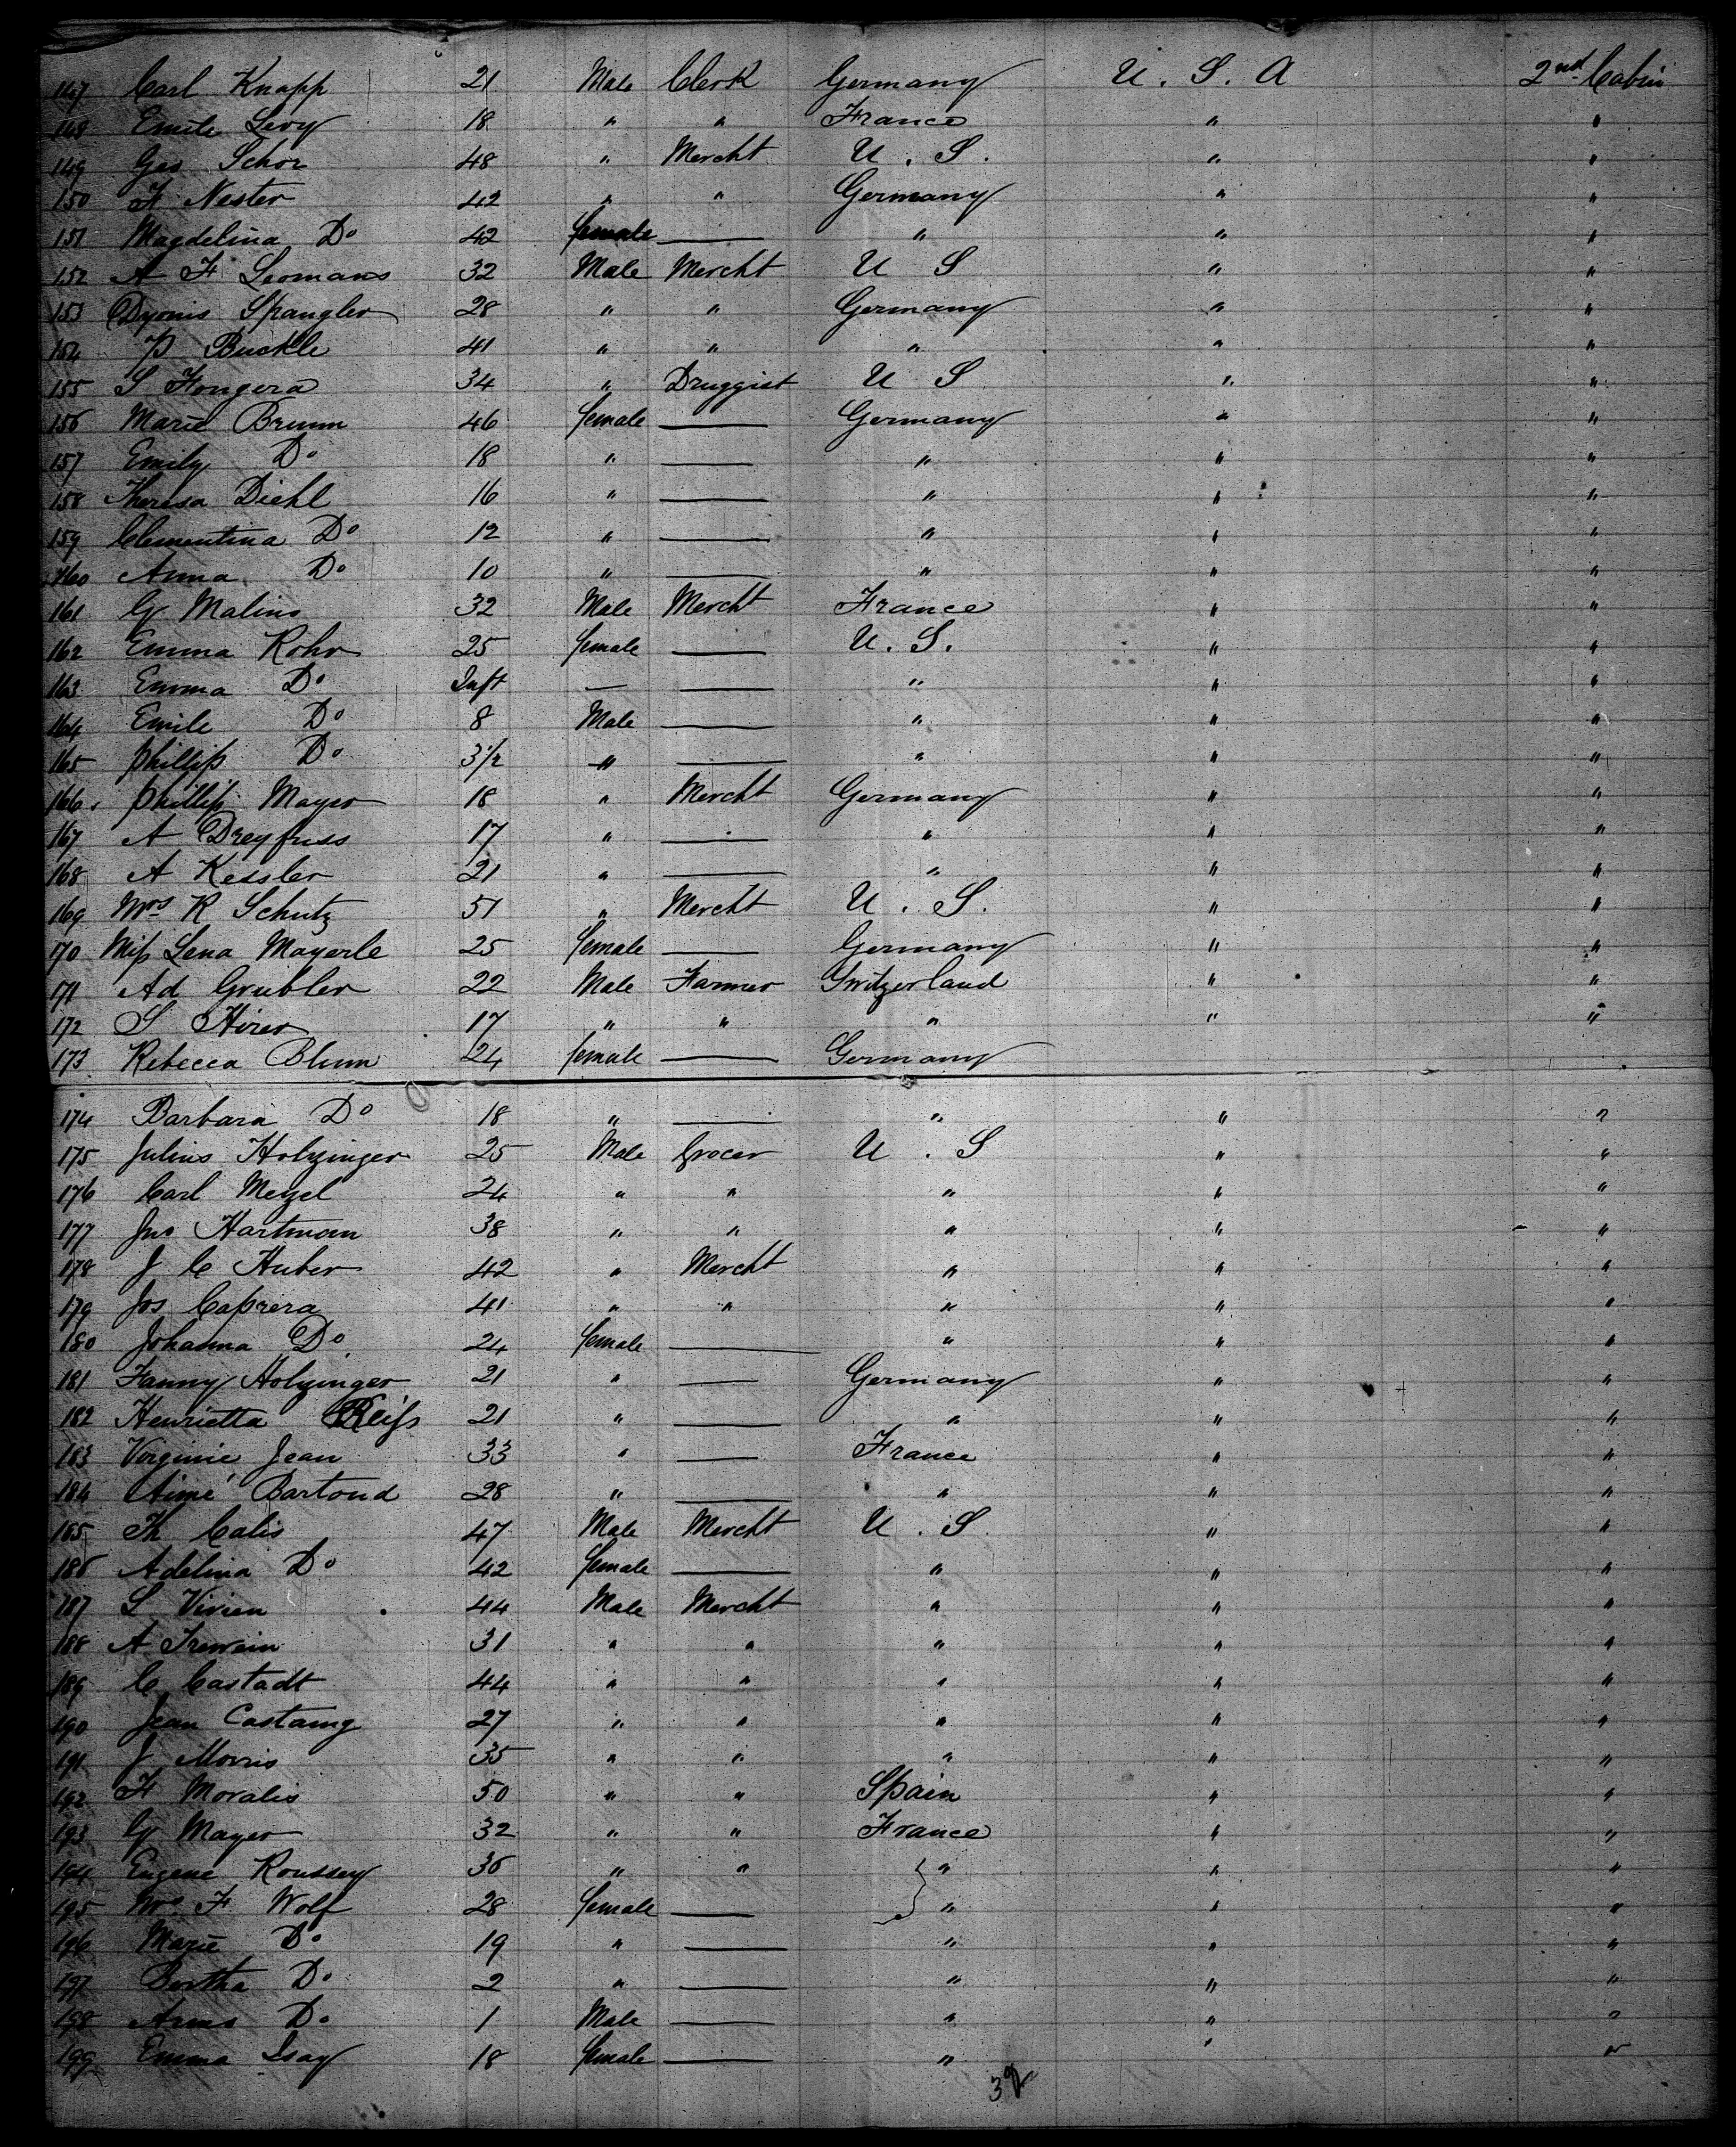 147 Carl Knapp 21 Male Clerk Germany U. S. A 2nd Cabin
148 Emile Levy 18 " " France " "
149 Geo Schor 48 " Mercht U. S. " "
150 F Nester 42 " " Germany " "
151 Magdelina Do 42 female — " " "
152 A F Leomans 32 Male Mercht U S " "
153 Dyonis Spangler 28 " " Germany " "
154 P Buckle 41 " " " " "
155 S Fougera 34 " Druggist U S " "
156 Marie Brumm 46 female — Germany " "
157 Emily Do 18 " — " " "
158 Theresa Diehl 16 " — " " "
159 Clementina Do 12 " — " " "
160 Anna Do 10 " — " " "
161 G Malins 32 Male Mercht France " "
162 Emma Rohr 25 female — U. S. " "
163 Emma Do Inft — — " " "
164 Emile Do 8 Male — " " "
165 Phillip Do 3 1/2 " — " " "
166 Phillip Mayer 18 " Mercht Germany " "
167 A Dreyfuss 17 " — " " "
168 A Kessler 21 " — " " "
169 Mrs R Schutz 51 " Mercht U. S. " "
170 Miss Lena Mayerle 25 female — Germany " "
171 Ad Grubler 22 Male Farmer Switzerland " "
172 S Hirer 17 " " " " "
173 Rebecca Blum 24 female — Germany
174 Barbara Do 18 " — " " "
175 Julius Holzinger 25 Male Grocer U. S " "
176 Carl Metzel 24 " " " " "
177 Jno Hartman 38 " " " " "
178 J C Huber 42 " Mercht " " "
179 Jos Caprera 41 " " " " "
180 Johanna Do 24 female — " " "
181 Fanny Holzinger 21 " — Germany " "
182 Henrietta Reiss 21 " — " " "
183 Virginie Jean 33 " — France " "
184 Aimé Bartoud 28 " — " " "
185 Th Calis 47 Male Mercht U. S. " "
186 Adelina Do 42 female — " " "
187 L Vivien 44 Male Mercht " " "
188 A Trewein 31 " " " " "
189 C Castadt 44 " " " " "
190 Jean Castaing 27 " " " " "
191 J Morris 35 " " " " "
192 F Moralis 50 " " Spain " "
193 G Mayer 32 " " France " "
194 Eugene Roussey 36 " " " " "
195 Mrs F Wolf 28 female — " " "
196 Marie Do 19 " — " " "
197 Bertha Do 2 " — " " "
198 Do 1 Male — " " "
199 Emma Isay 18 female — " " "